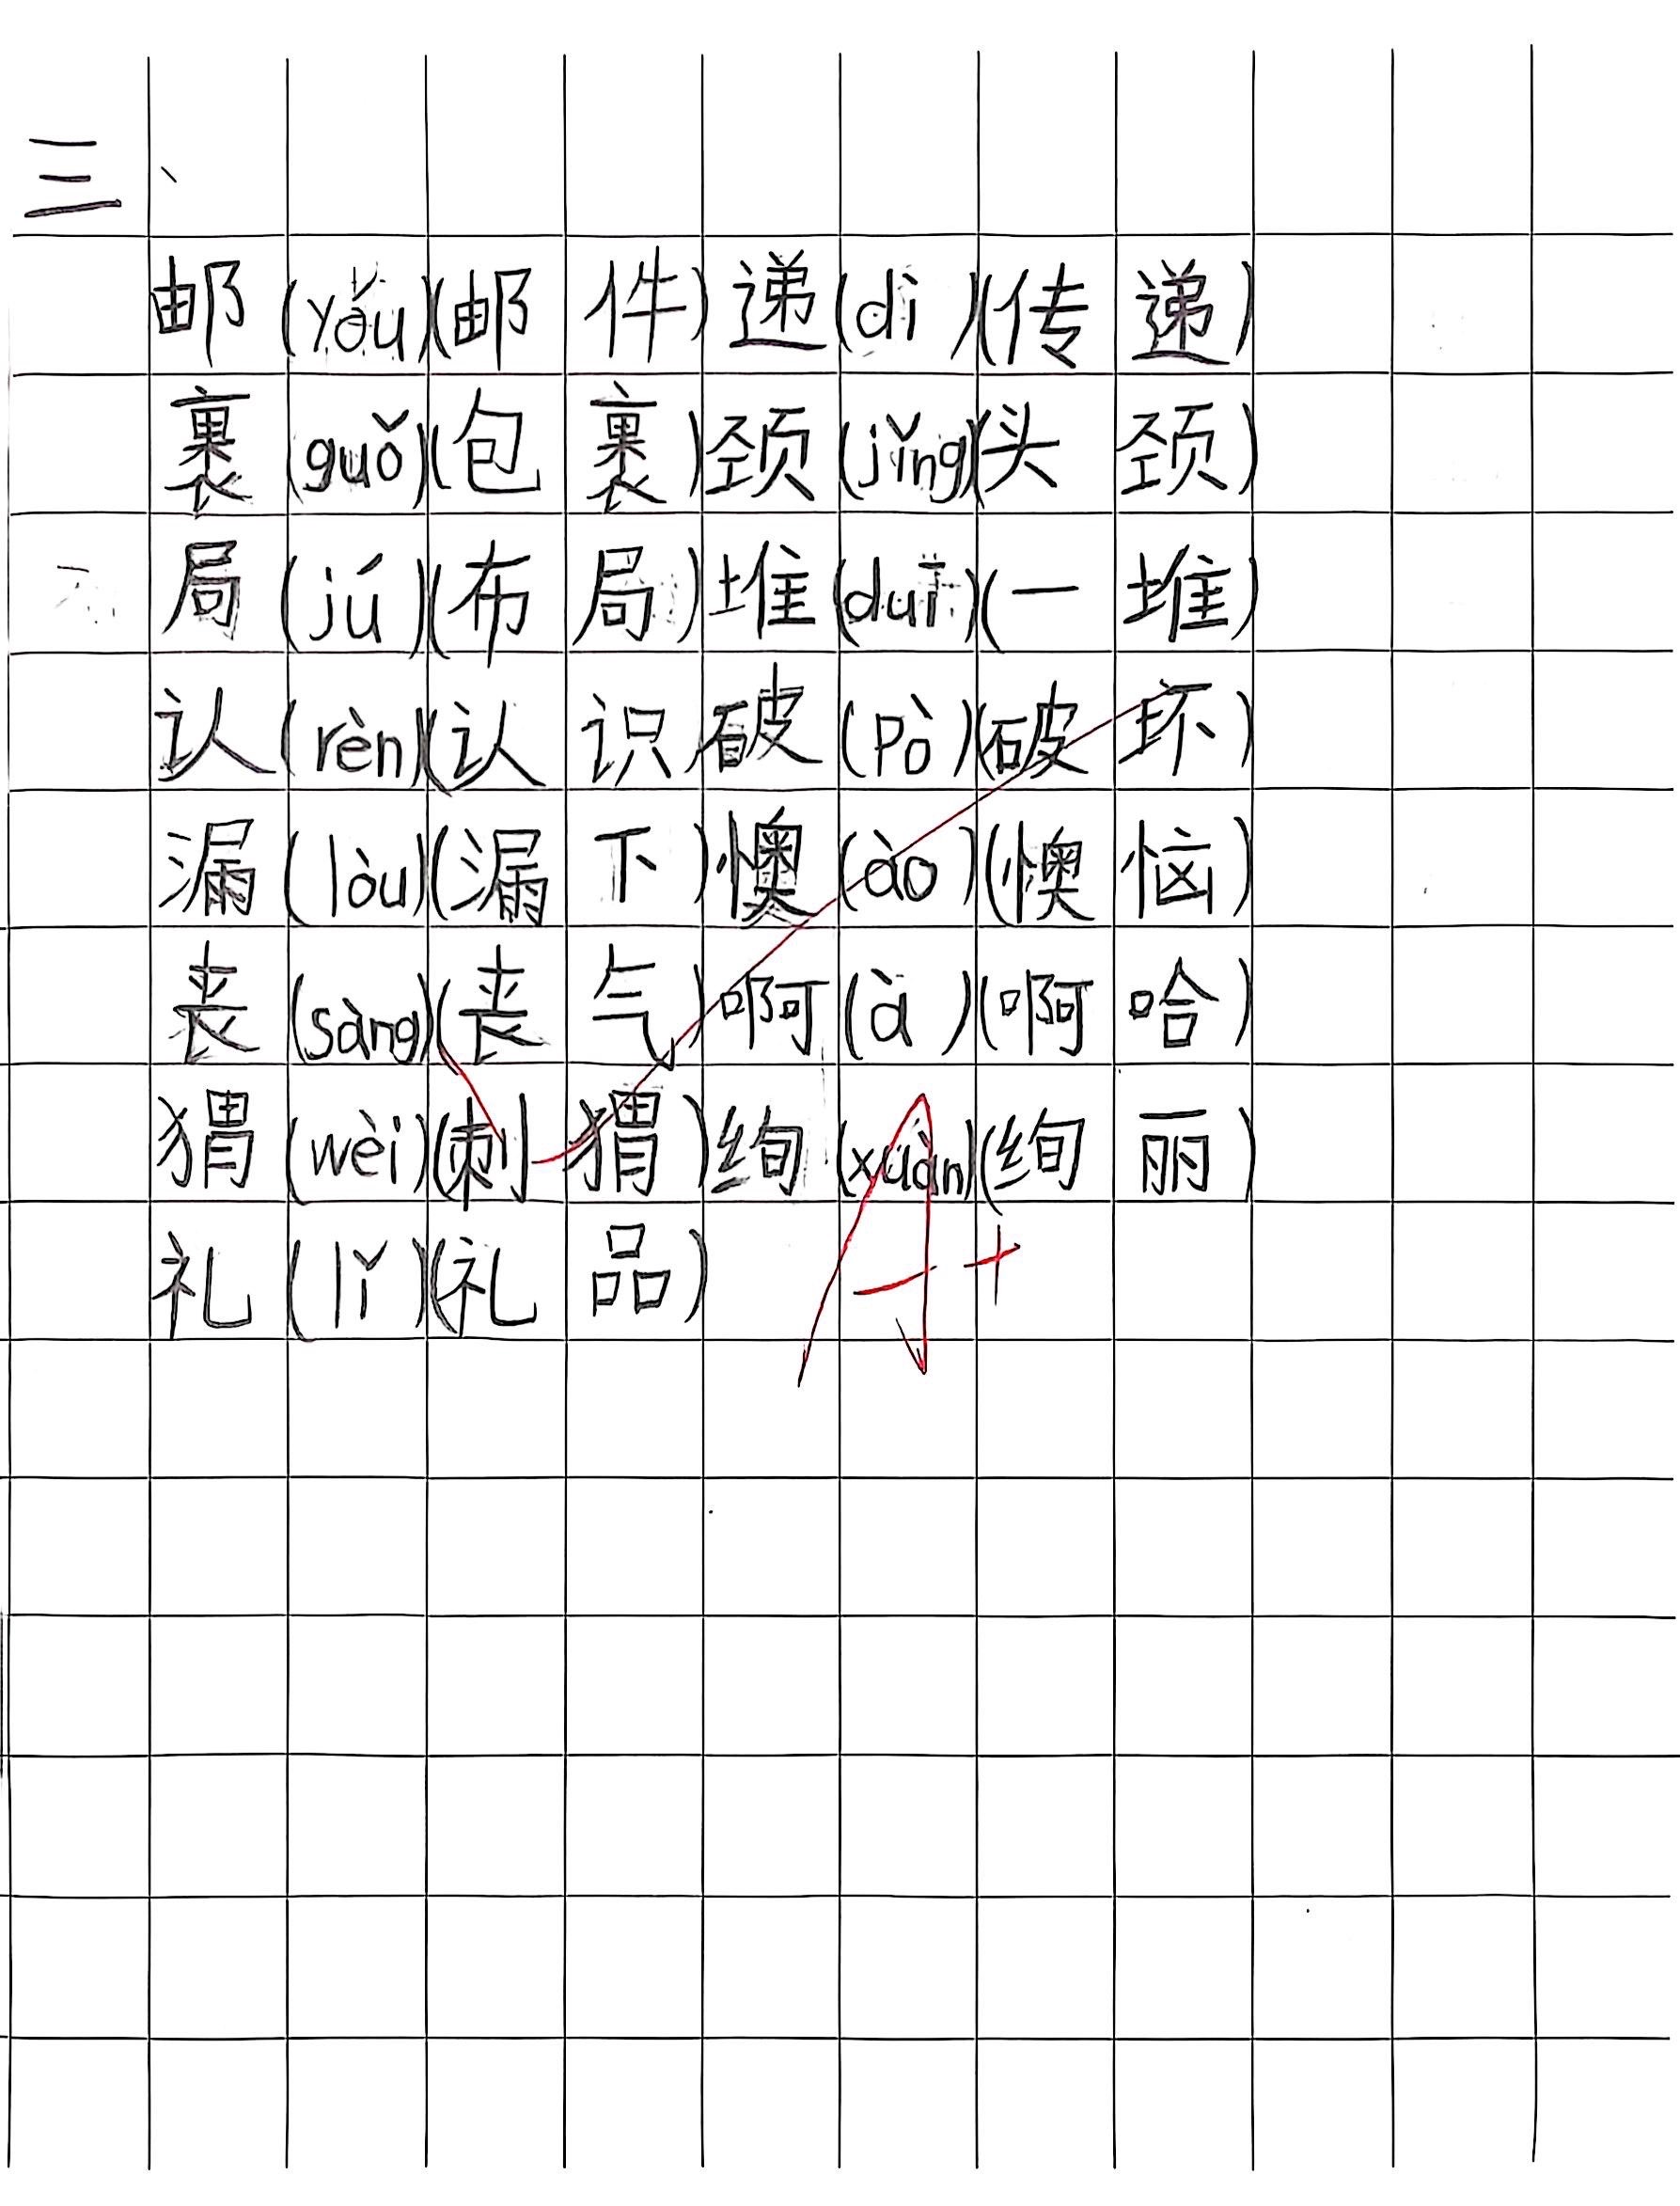 三、
邮(yóu)(邮件)递(dì)(传递)
裹(guǒ)(包裹)颈(jǐng)(头颈)
局(jú)(布局)堆(duī)(一堆)
认(rèn)(认识)破(pò)(破坏)
漏(lòu)(漏下)懊(ào)(懊恼)
丧(sàng)(丧气)啊(à)(啊哈)
猬(wèi)(刺猬)绚(xuàn)(绚丽)
礼(lǐ)(礼品)
A+